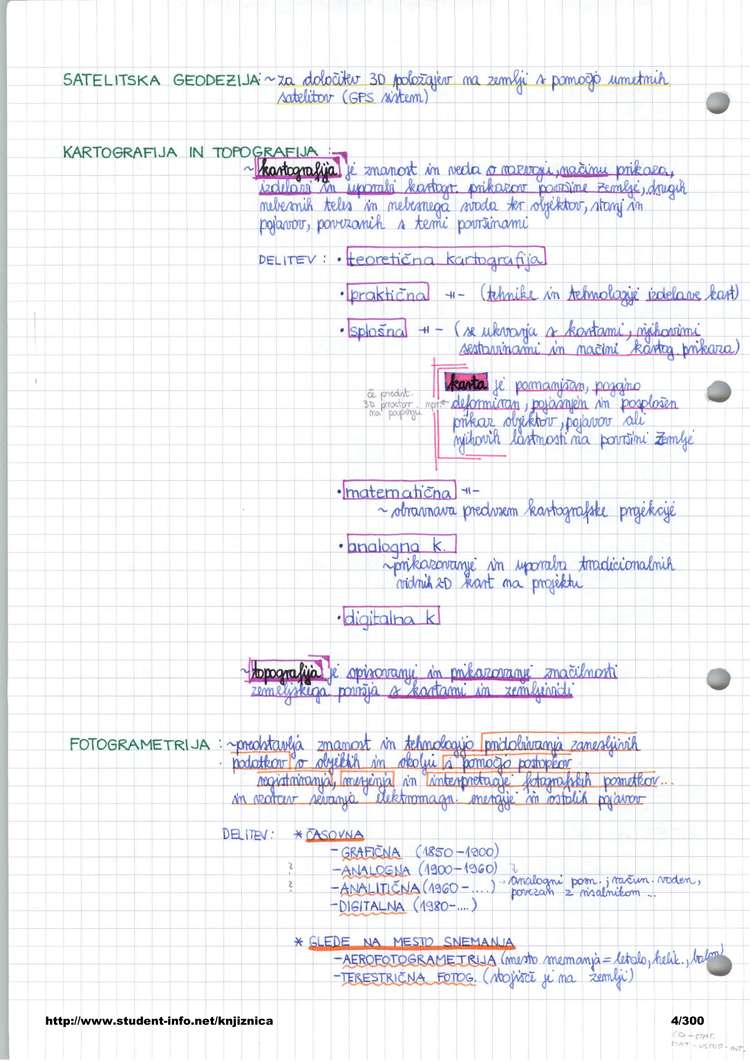 SATELITSKA GEODEZIJA: ~ za določitev 3D položajev na zemlji s pomočjo umetnih
satelitov (GPS sistem)
KARTOGRAFIJA IN TOPOGRAFIJA :
~ kartografija je znanost in veda o razvoju, načinu prikaza,
izdelavi in uporabi kartogr. prikazov površine zemlje, drugih
nebesnih teles in nebesnega svoda ter objektov, stanj in
pojavov, povezanih s temi površinami
DELITEV : • teoretična kartografija
• praktična -||- (tehnike in tehnologije izdelave kart)
• splošna -||- (se ukvarja s kartami, njihovimi
sestavinami in načini kartog. prikaza)
karta je pomanjšan, pogojno
deformiran, pojasnjen in posplošen
prikaz objektov, pojavov ali
njihovih lastnosti na površini Zemlje
če predst.
3D prostor
na papirju
• matematična -||-
~ obravnava predvsem kartografske projekcije
• analogna k.
~ prikazovanje in uporaba tradicionalnih
vidnih 2D kart na projektu
• digitalna k
~ topografija je opisovanje in prikazovanje značilnosti
zemeljskega površja s kartami in zemljevidi
FOTOGRAMETRIJA : ~ predstavlja znanost in tehnologijo pridobivanja zanesljivih
podatkov o objektih in okolju s pomočjo postopkov
registriranja, merjenja in interpretacije fotografskih posnetkov...
in vzorcev sevanja elektromagn. energije in ostalih pojavov
DELITEV: * ČASOVNA
- GRAFIČNA (1850-1900)
? - ANALOGNA (1900-1960) ?
? - ANALITIČNA (1960-....) analogni pom. j račun. voden,
povezan z risalnikom ...
- DIGITALNA (1980-...)
* GLEDE NA MESTO SNEMANJA
- AEROFOTOGRAMETRIJA (mesto snemanja = letalo, helik., balon)
- TERESTRIČNA FOTOG. (stojišče je na zemlji)
http://www.student-info.net/knjiznica 4/300